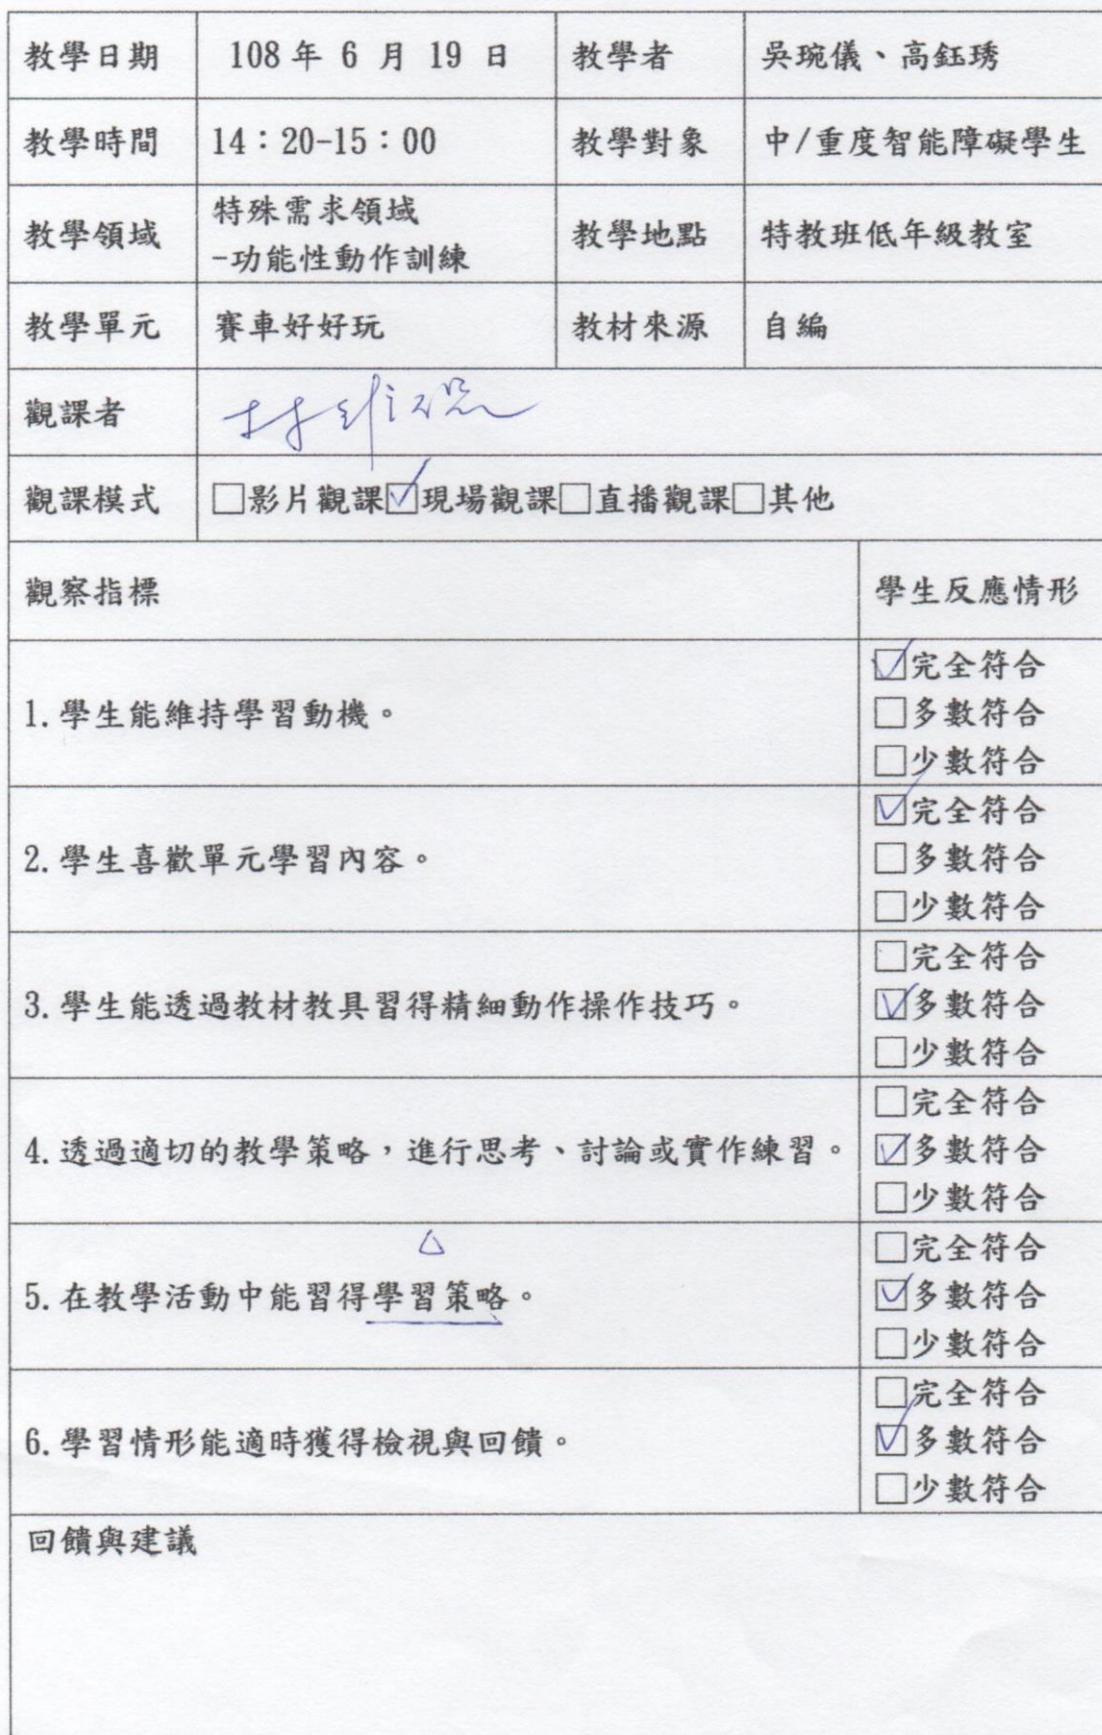 教學日期 108年 6 月 19 日 教學者 吳琬儀、高鈺琇
教學時間 14：20-15：00 教學對象 中/重度智能障礙學生
教學領域 特殊需求領域
-功能性動作訓練 教學地點 特教班低年級教室
教學單元 賽車好好玩 教材來源 自編
觀課者
觀課模式 □影片觀課☑現場觀課□直播觀課□其他
觀察指標 學生反應情形
1.學生能維持學習動機。
☑完全符合
□多數符合
□少數符合
2.學生喜歡單元學習內容。
☑完全符合
□多數符合
□少數符合
3.學生能透過教材教具習得精細動作操作技巧。
□完全符合
☑多數符合
□少數符合
4.透過適切的教學策略，進行思考、討論或實作練習。
□完全符合
☑多數符合
□少數符合
5.在教學活動中能習得學習策略。
□完全符合
☑多數符合
□少數符合
6.學習情形能適時獲得檢視與回饋。
□完全符合
☑多數符合
□少數符合
回饋與建議